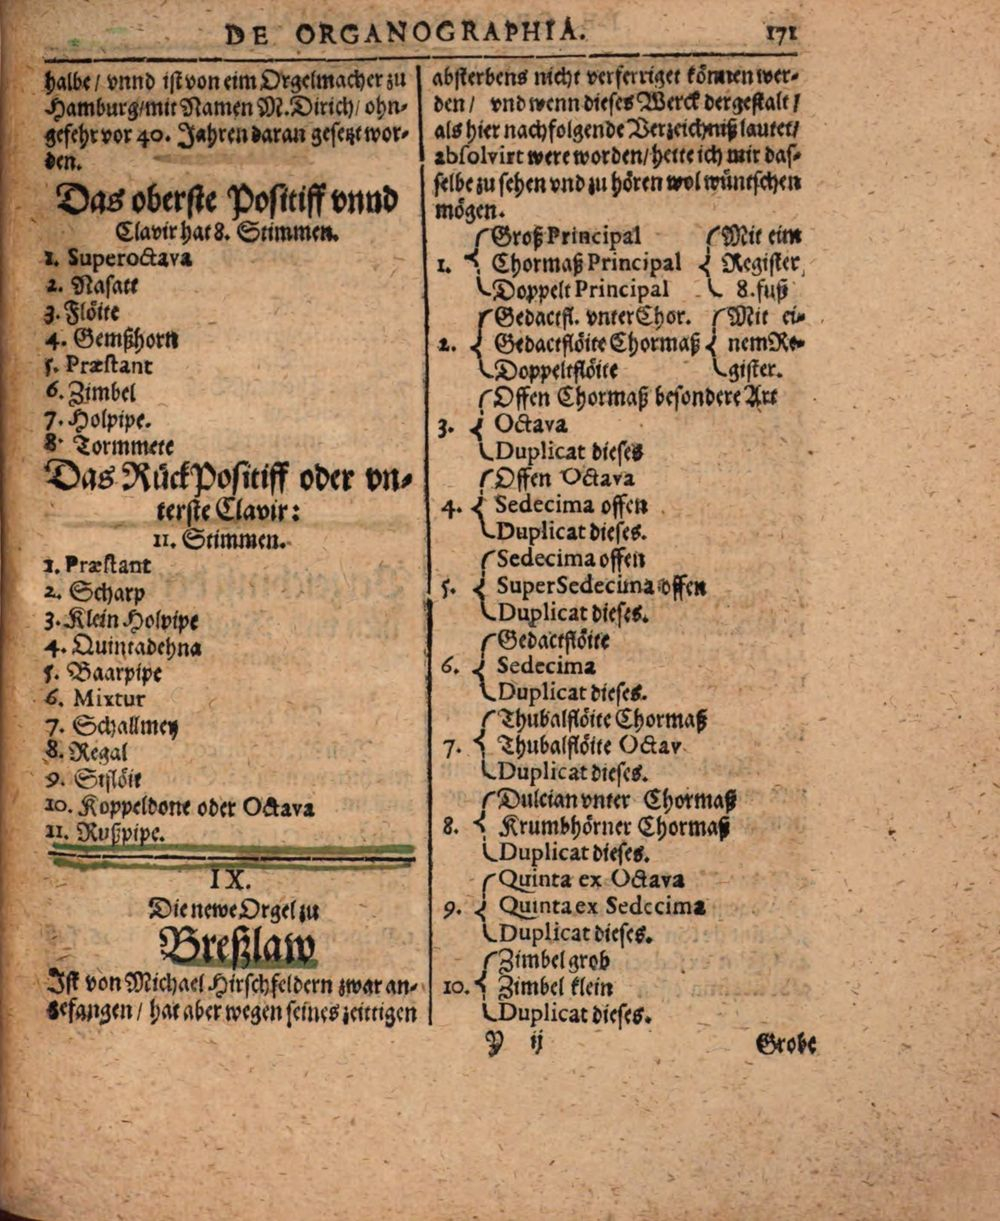 DE ORGANOGRAPHIA. 171
halbe / vnnd ist von eim Orgelmacher zu
Hamburg / mit Namen M. Dirich / ohn-
gefehr vor 40. Jahren daran gesetzt wor-
den.
Das oberste Positiff vnnd
Clavir hat 8. Stimmen.
1. Superoctava
2. Nasatt
3. Flöite
4. Gemßhorn
5. Præstant
6. Zimbel
7. Holpipe.
8. Tormmete
Das RückPositiff oder vn-
terste Clavir:
11. Stimmen.
1. Præstant
2. Scharp
3. Klein Holpipe
4. Quintadehna
5. Baarpipe
6. Mixtur
7. Schallmey
8. Regal
9. Siflöit
10. Koppeldone oder Octava
11. Rußpipe.
IX.
Die newe Orgel zu
Breßlaw
Ist von Michael Hirschfeldern zwar an-
gefangen / hat aber wegen seines zeittigen
absterbens nicht verferriget können wer-
den / vnd wenn dieses Werck dergestalt /
als hier nachfolgende Verzeichniß lautet /
absolvirt were worden / hette ich mir das-
selbe zu sehen vnd zu hören wol wüntschen
mögen.
Groß Principal Mit eim
1. Chormaß Principal Register
Doppelt Principal 8. fuß
Gedactfl. vnter Chor. Mit ei-
2. Gedactflöite Chormaß nem Re-
Doppeltflöite gister.
Offen Chormaß besondere Art
3. Octava
Duplicat dieses
Offen Octava
4. Sedecima offen
Duplicat dieses.
Sedecima offen
5. SuperSedecima offen
Duplicat dieses.
Gedactflöite
6. Sedecima
Duplicat dieses.
Thubalflöite Chormaß
7. Thubalflöite Octav
Duplicat dieses.
Dulcian vnter Chormaß
8. Krumbhörner Chormaß
Duplicat dieses.
Quinta ex Octava
9. Quinta ex Sedecima
Duplicat dieses.
Zimbel grob
10. Zimbel klein
Duplicat dieses.
Y ij Grobe